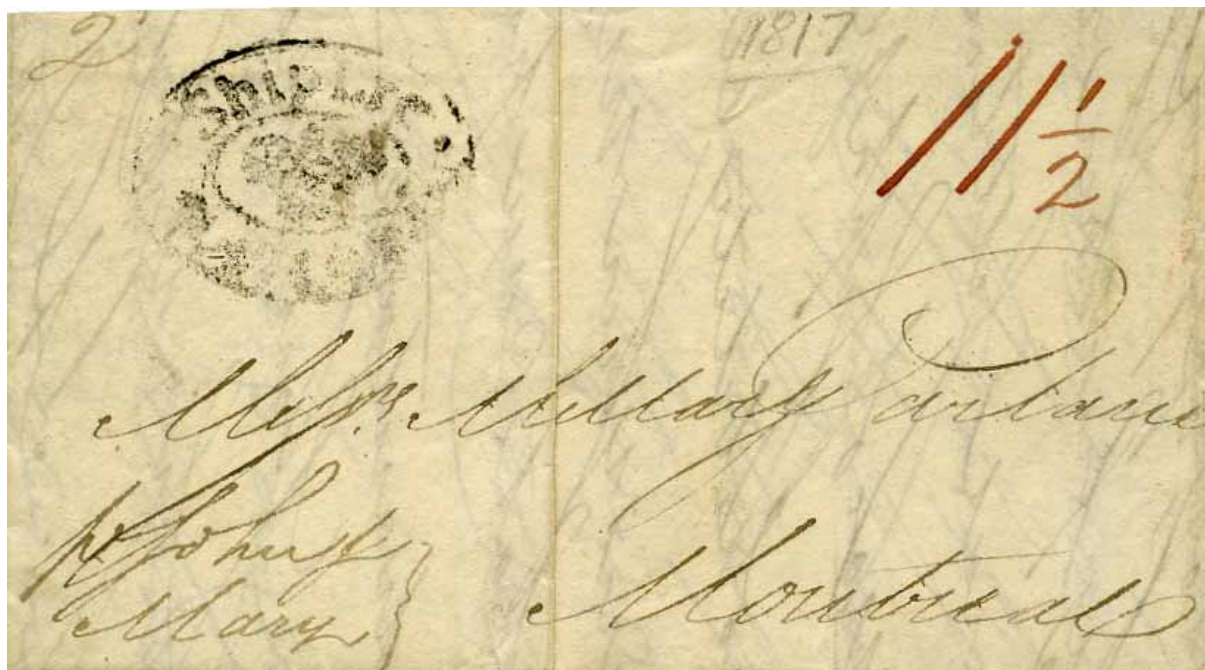 2
1817
Ship Lre.
11 1/2
Messrs. Millar Parlane
Montreal
pr John &
Mary